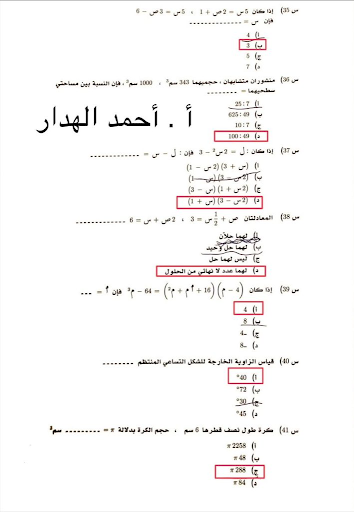 س 35) إذا كان 5س = 2ص + 1 ، 5س = 3ص − 6
فإن س = ــــــــــــ
أ) 4
ب) 3
ج) 5
د) 7
س 36) منشوران متشابهان ، حجميهما 343 سم³ ، 1000 سم³ ، فإن النسبة بين مساحتي
سطحيهما = ــــــــــــ
أ) 25:7
ب) 625:49
ج) 10:7
د) 100:49
أ . أحمد الهدار
س 37) إذا كان : ل = 2س² − 3 فإن : ل − س = ــــــــــــ
أ) (س + 3) (2س − 1)
ب) (2س − 3) (س − 1)
ج) (2س + 1) (س − 3)
د) (2س − 3) (س + 1)
س 38) المعادلتان ص + ½ س = 3 ، 2ص + س = 6 ــــــــــــ
أ) لهما حلان
ب) لهما حل وحيد
ج) ليس لهما حل
د) لهما عدد لا نهائي من الحلول
س 39) إذا كان (4 − م) (16 + أم + م²) = 64 − م³ فإن أ = ـــــ
أ) 4
ب) 8
ج) −4
د) −8
س 40) قياس الزاوية الخارجة للشكل التساعي المنتظم ــــــــــــ
أ) 40°
ب) 72°
ج) 30°
د) 45°
س 41) كرة طول نصف قطرها 6 سم ، حجم الكرة بدلالة π = ــــــــــــ سم³
أ) 2258 π
ب) 48 π
ج) 288 π
د) 84 π